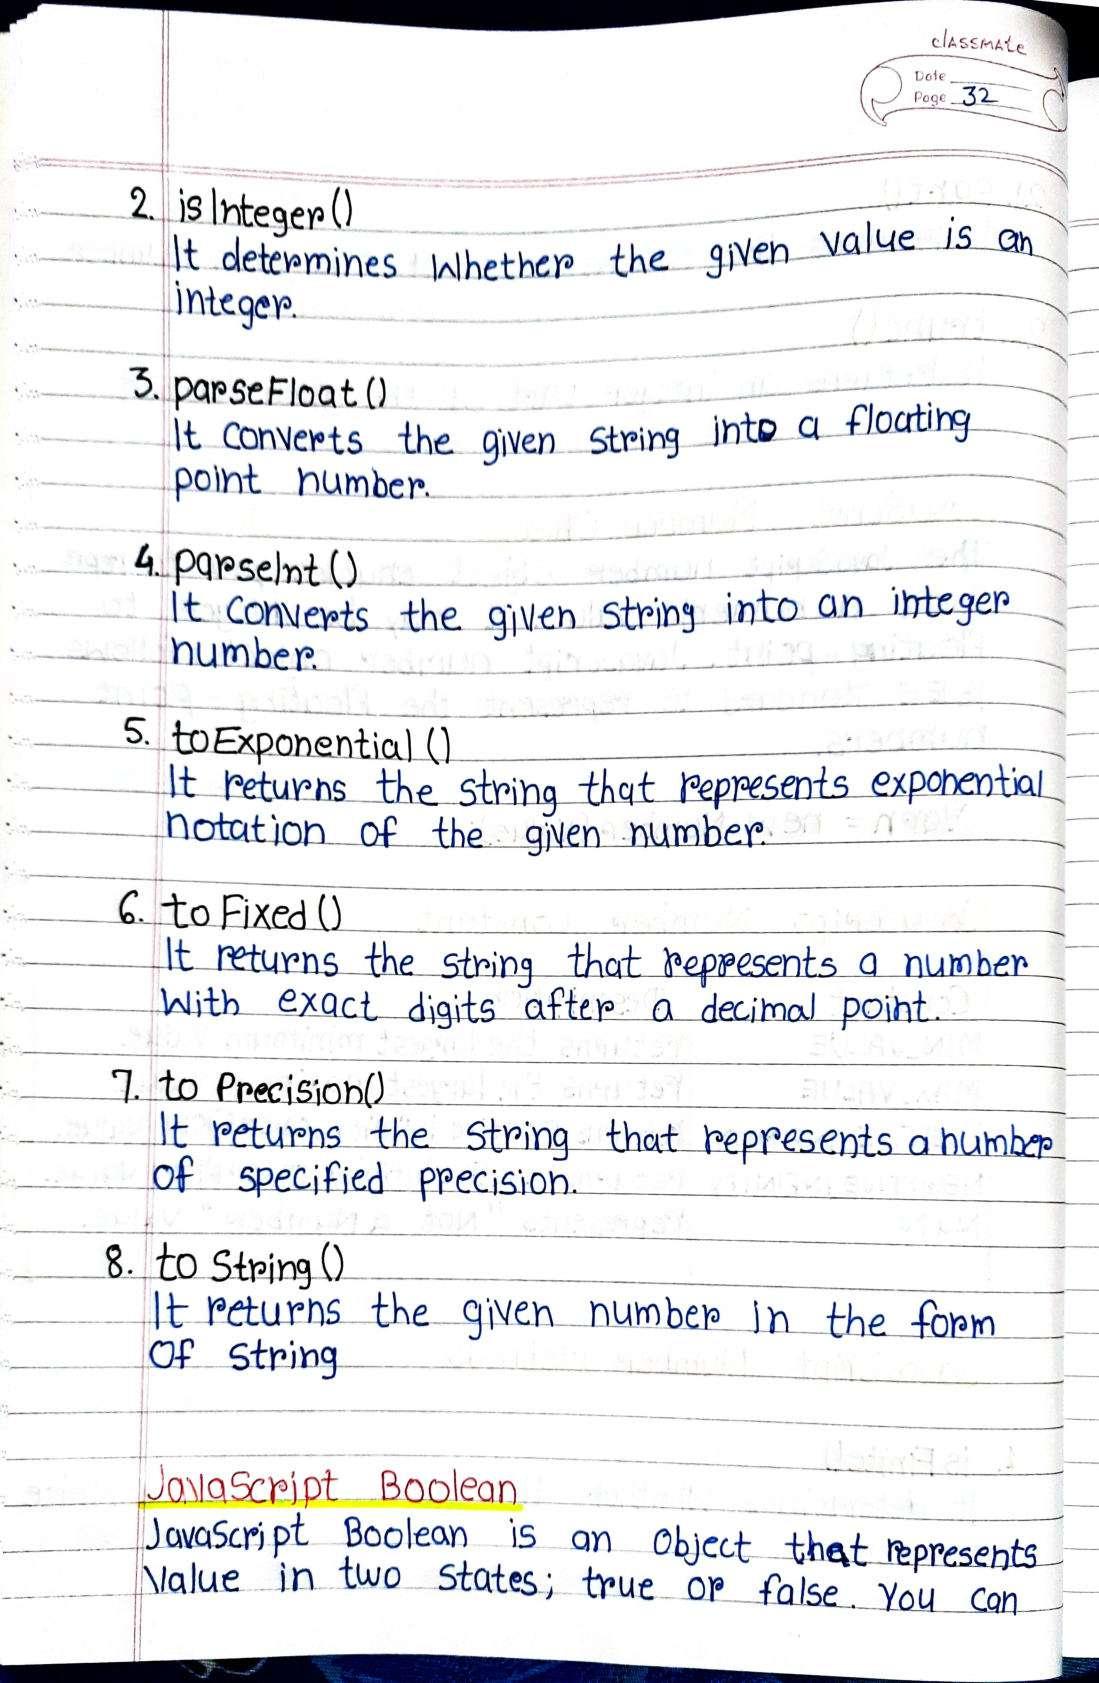 classmate
Date
Page 32
2. isInteger()
It determines whether the given value is an
integer.
3. parseFloat()
It converts the given string into a floating
point number.
4. parseInt()
It converts the given string into an integer
number.
5. toExponential()
It returns the string that represents exponential
notation of the given number.
6. toFixed()
It returns the string that represents a number
with exact digits after a decimal point.
7. to Precision()
It returns the string that represents a number
of specified precision.
8. to String()
It returns the given number in the form
of string
JavaScript Boolean
JavaScript Boolean is an object that represents
value in two states; true or false. You can